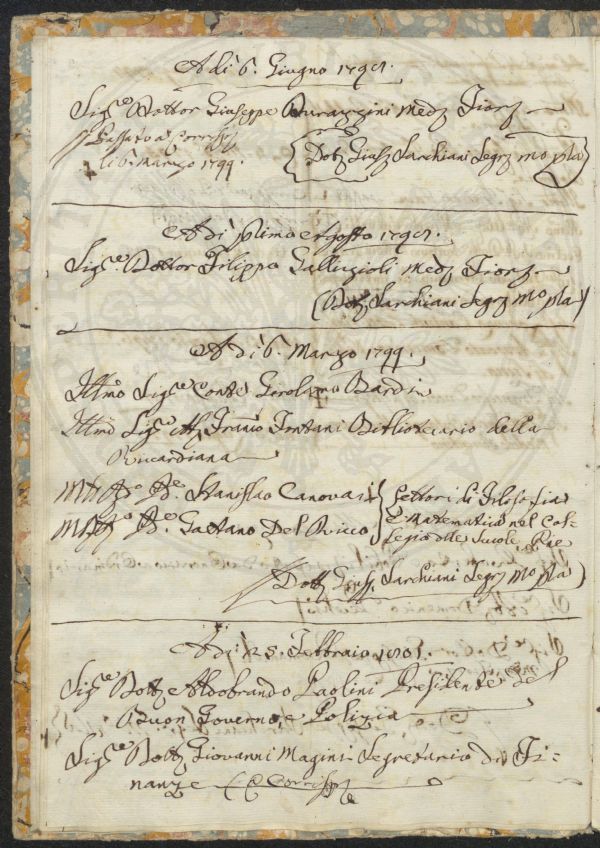 A dì 6. Giugno 1798.
Sig.e Dottor Giuseppe Med.
Passato a Corrisp.
li 6. Marzo 1799.
(Dott. Gius. Sarchiani Seg.
A dì primo Agosto 1798.
Sig.e Dottor Filippo Gallizioli Med.
(Dott. Sarchiani Seg.
A dì 6. Marzo 1799.
Illmo Sig.e Conte Girolamo Bardi
Illmo Sig.e Fontani Bibliotecario della
Riccardiana
Stanislao Canovai
Gaetano Del Ricco
Lettori di Filosofia
e Matematica nel Col-
legio delle Scuole Pie
(Dott. Gius. Sarchiani Seg.
A dì 25. Febbraio 1801.
Sig.e Dott. Aldobrando Paolini Presidente del
Buon Governo e Polizia
Sig.e Dott. Giovanni Magini Segretario di Fi-
nanze (C Corrisp.